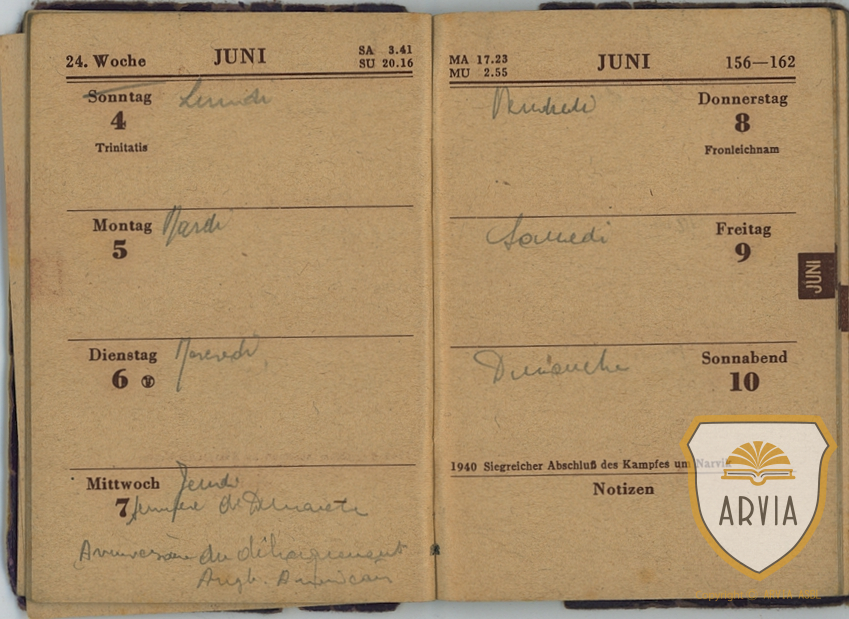 24. Woche JUNI SA 3.41
SU 20.16
Sonntag Lundi
4
Trinitatis
Montag Mardi
5
Dienstag Mercredi
6
Mittwoch Jeudi
7
Anniversaire du débarquement
Anglo. Américain
MA 17.23 JUNI 156—162
MU 2.55
Vendredi Donnerstag
8
Fronleichnam
Samedi Freitag
9
JUNI
Dimanche Sonnabend
10
1940 Siegreicher Abschluß des Kampfes um Narvik
Notizen
ARVIA